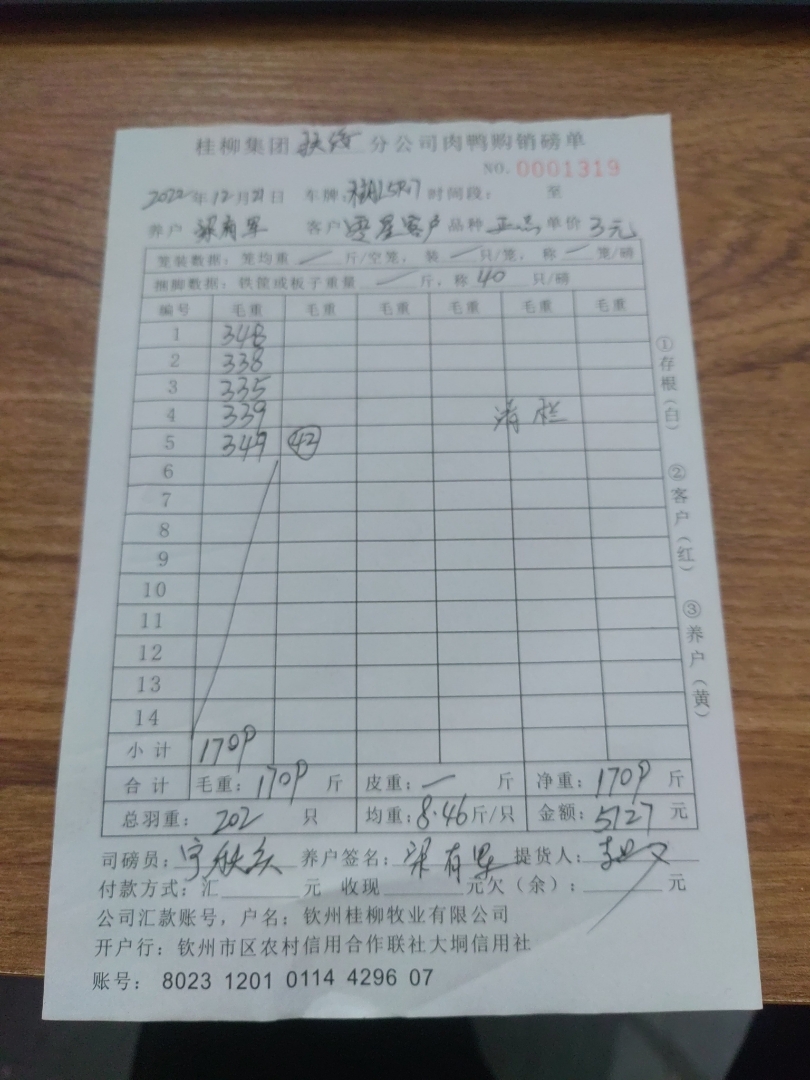 桂柳集团 分公司肉鸭购销磅单
NO. 0001319
2022年12月21日 车牌: 时间段: 至
养户 梁有军 客户 零星客户 品种 正品 单价 3元
笼装数据: 笼均重 一 斤/空笼, 装 一 只/笼, 称 一 笼/磅
捆脚数据: 铁筐或板子重量 一 斤, 称 40 只/磅
编号 毛重 毛重 毛重 毛重 毛重 毛重
1 348
2 338
3 335
4 339 清栏
5 349 42
6
7
8
9
10
11
12
13
14
小计 1709
合计 毛重: 1709 斤 皮重: 一 斤 净重: 1709 斤
总羽重: 202 只 均重: 8.46斤/只 金额: 5127 元
司磅员: 养户签名: 梁有军 提货人:
付款方式: 汇 元 收现 元欠(余): 元
公司汇款账号, 户名: 钦州桂柳牧业有限公司
开户行: 钦州市区农村信用合作联社大垌信用社
账号: 8023 1201 0114 4296 07
①存根(白) ②客户(红) ③养户(黄)